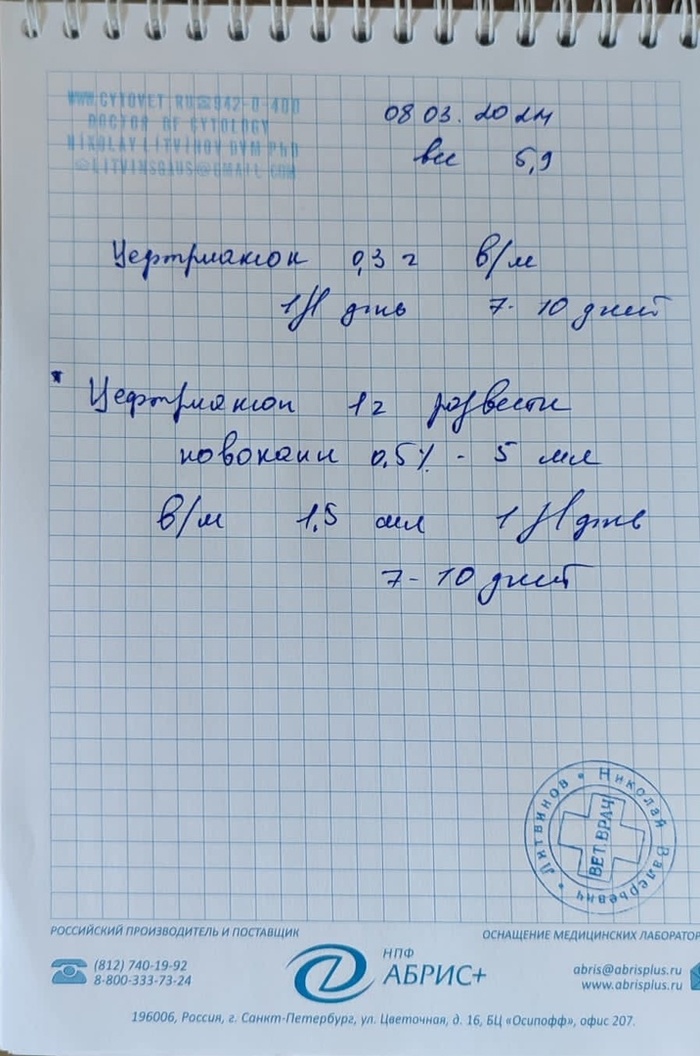 WWW.CYTOVET.RU☎942-0-400
DOCTOR OF CYTOLOGY
NIKOLAY LITVINOV DVM PhD
@LITVINSGAUS@GMAIL.COM
08 03. 2024
вес 5,9
Цефтриаксон 0,3 г в/м
1 р/день 7-10 дней
* Цефтриаксон 1г развести
новокаин 0,5% - 5 мл
в/м 1,5 мл 1 р/день
7-10 дней
Литвинов * Николай Валерьевич *
ВЕТ.ВРАЧ
РОССИЙСКИЙ ПРОИЗВОДИТЕЛЬ И ПОСТАВЩИК
ОСНАЩЕНИЕ МЕДИЦИНСКИХ ЛАБОРАТОР
(812) 740-19-92
8-800-333-73-24
НПФ
АБРИС+
abris@abrisplus.ru
www.abrisplus.ru
196006, Россия, г. Санкт-Петербург, ул. Цветочная, д. 16, БЦ «Осипофф», офис 207.